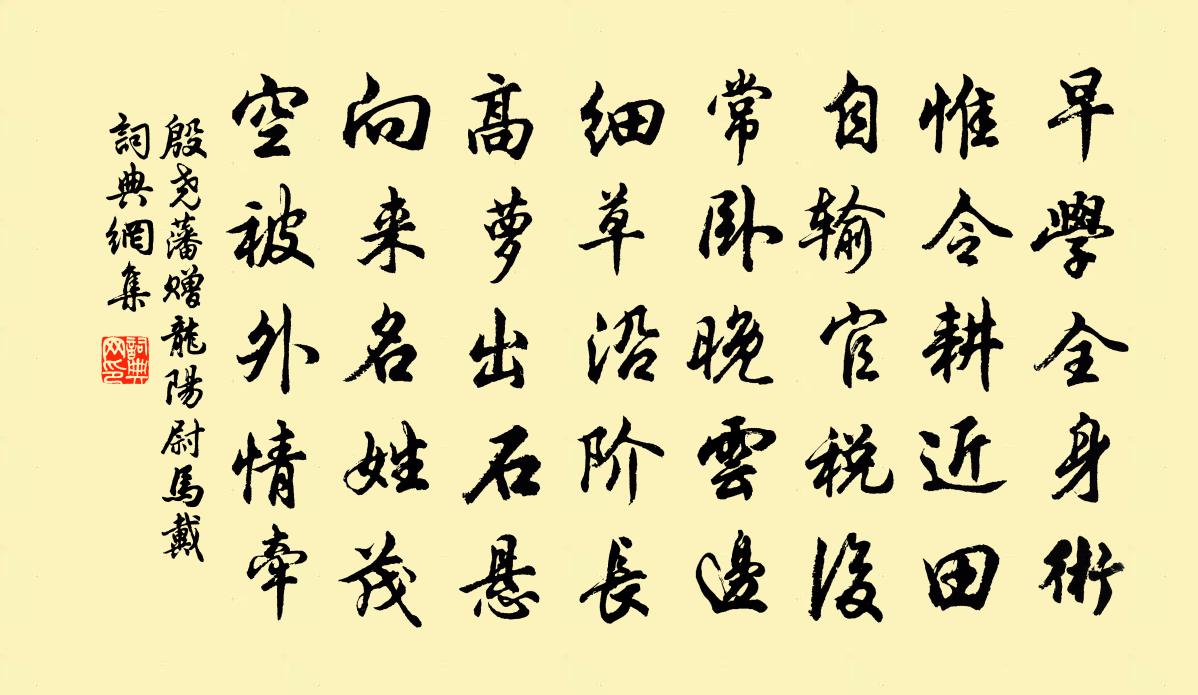 早學全身術
惟令耕近田
自輸官税後
常卧晚雲邊
细草沿阶長
高萝出石悬
向来名姓茂
空被外情牽
殷尧藩赠龍陽尉馬戴
詞典網集
詞典网印